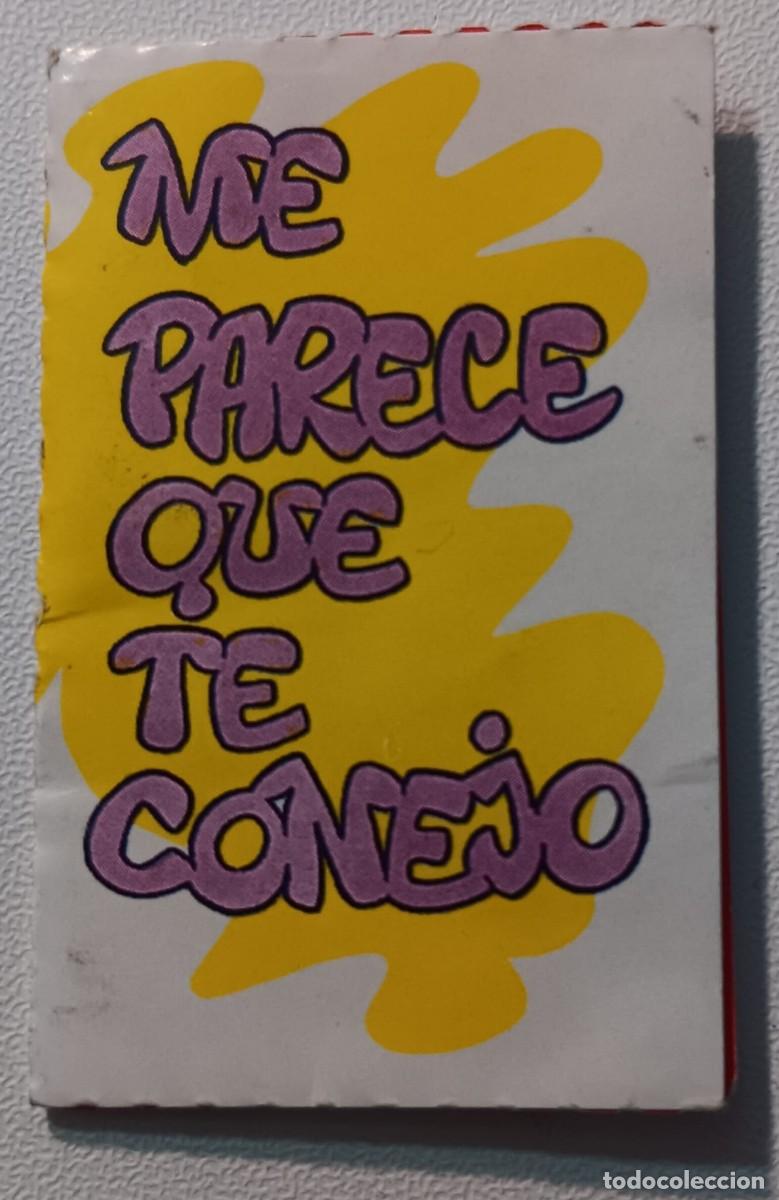 ME
PARECE
QUE
TE
CONEJO
todocoleccion